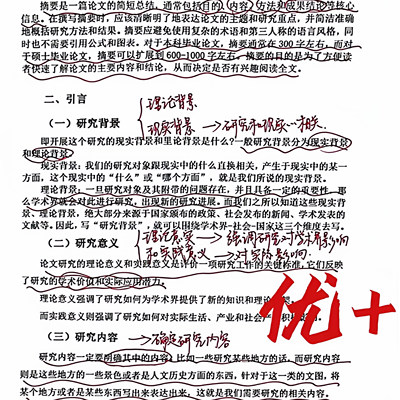 摘要是一篇论文的简短总结，通常包括目的、内容、方法和成果结论等核心
信息。在撰写摘要时，应该清晰明了地表达论文的主题和研究重点，并简洁准确
地概括研究方法和结果。摘要应避免使用复杂的术语和第三人称的语言风格，同
时也不需要引用公式和图表。对于本科毕业论文，摘要通常在300字左右，而对
于硕士毕业论文，摘要可以扩展到600-1000字左右。摘要的目的是为了方便读
者快速了解论文的主要内容和结论，从而决定是否有兴趣阅读全文。
二、引言
理论背景
（一）研究背景
现实背景→研究和现实相关
即开展这个研究的现实背景和理论背景是什么？一般研究背景分为现实背景
和理论背景。
现实背景：我们的研究对象跟现实中的什么直接相关，产生于现实中的某一
方面，这个现实中的“什么”或“哪个方面”，就是我们所说的现实背景。
理论背景：一旦研究对象及其附带的问题存在，并且具备一定的重要性，那
么学术界就会对此进行研究，出现新的研究进展。而我们之所以知道这些现实背
景、理论背景，绝大部分来源于国家颁布的政策、社会发布的新闻、学术发表的
文献等。因此，写“研究背景”，就可以围绕学术界-社会-国家这三个维度去写。
（二）研究意义
理论意义→强调研究对学术界影响
和实践意义→对实际影响
论文研究的理论意义和实践意义是评价一项研究工作的关键标准，它们反映
了研究的学术价值和实际应用潜力。
理论意义强调了研究如何为学术界提供了新的知识和理论
而实践意义则强调了研究如何对实际生活、产业和社会产
优+
（三）研究内容→确定研究内容
研究内容一定要明确其中的内容，比如一些研究某些地方的话，而研究内容
则是这些地方的一些景色或者是人文历史方面的东西，针对于这一类的文图，将
某个地方或者是某些东西写出来表达出来，这就是我们需要研究的相关内容。